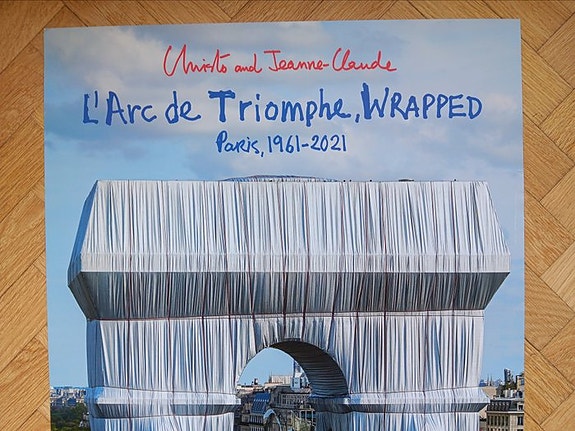 Christo and Jeanne-Claude
L'Arc de Triomphe, WRAPPED
Paris, 1961-2021